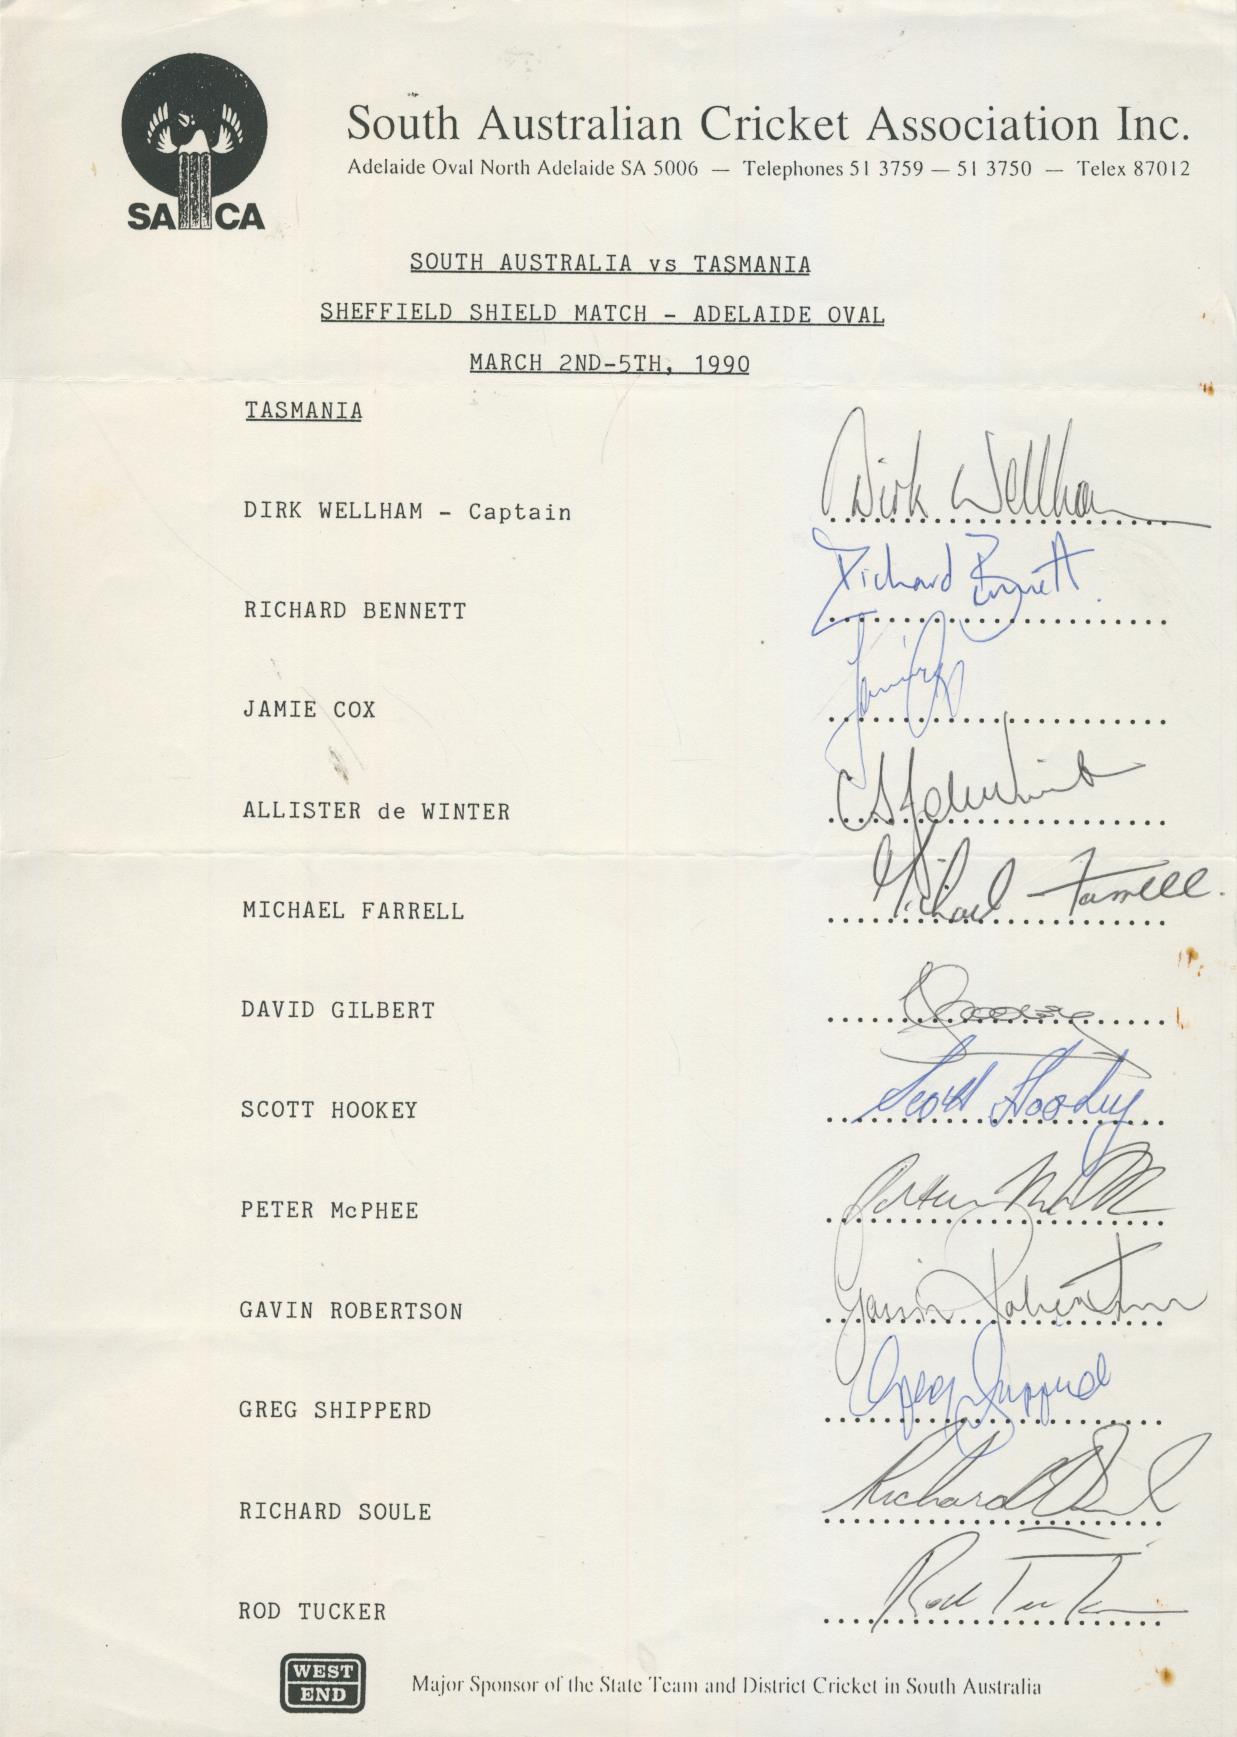 SACA
South Australian Cricket Association Inc.
Adelaide Oval North Adelaide SA 5006 — Telephones 51 3759 — 51 3750 — Telex 87012
SOUTH AUSTRALIA vs TASMANIA
SHEFFIELD SHIELD MATCH - ADELAIDE OVAL
MARCH 2ND-5TH, 1990
TASMANIA
DIRK WELLHAM - Captain Dirk Wellham
RICHARD BENNETT Richard Bennett
JAMIE COX
ALLISTER de WINTER
MICHAEL FARRELL Michael Farrell
DAVID GILBERT
SCOTT HOOKEY Scott Hookey
PETER McPHEE
GAVIN ROBERTSON Gavin Robertson
GREG SHIPPERD Greg Shipperd
RICHARD SOULE Richard Soule
ROD TUCKER Rod Tucker
WEST
END
Major Sponsor of the State Team and District Cricket in South Australia